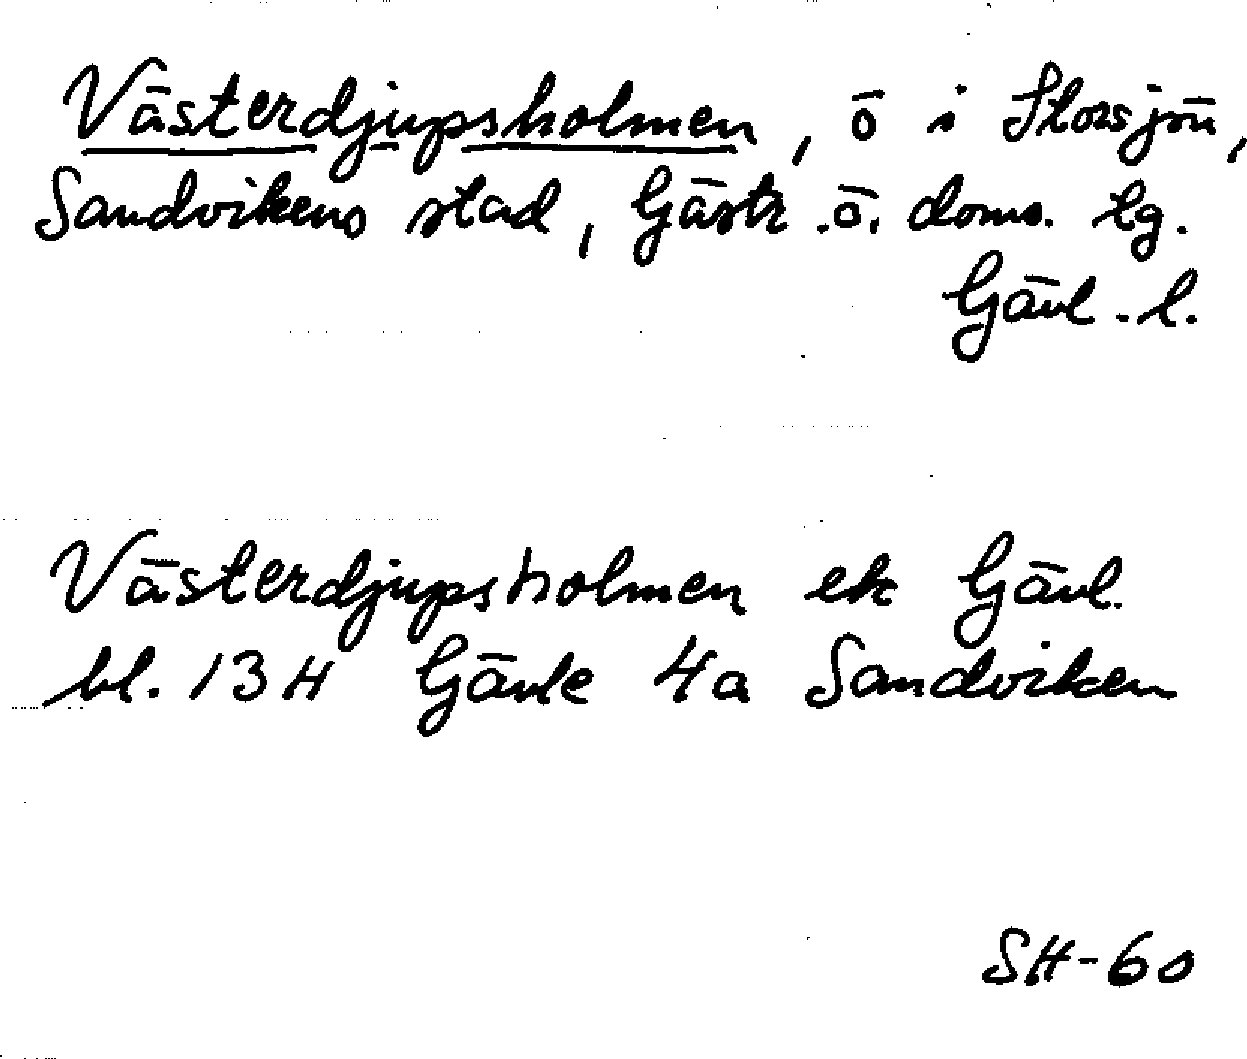 Västerdjupsholmen, ö i Storsjön,
Sandvikens stad, Gästr. ö. doms. lg.
Gävl. l.
Västerdjupsholmen ek Gävl.
bl. 13H Gävle 4a Sandviken
SH-60